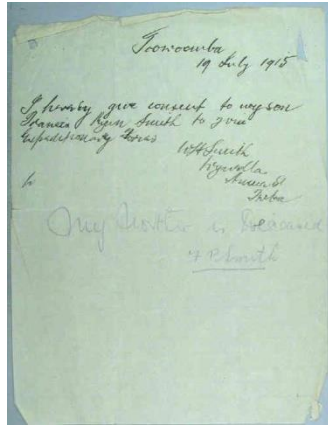 Toowoomba
19 July 1915
I hereby give consent to my son
Francis Smith to join
Expeditionary Forces
W H Smith
Anna St
Twba
My Mother is Deceased
F R Smith